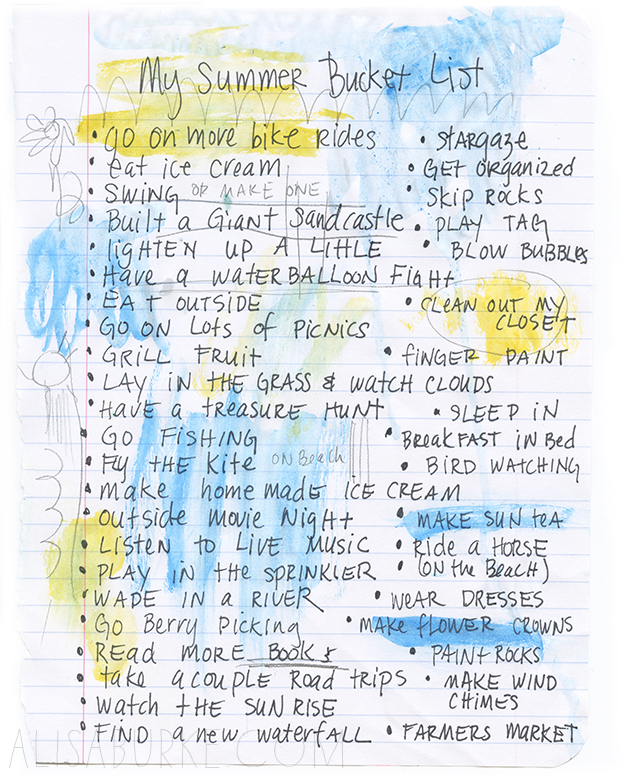 My Summer Bucket List
• go on more bike rides
• eat ice cream
• SWING OR MAKE ONE
• Built a Giant Sandcastle
• lighten up A little
• Have a waterballoon Fight
• EAT OUTSIDE
• GO ON Lots of PICNICS
• GRILL FRUIT
• LAY IN THE GRASS & watch CLOUDS
• HAVE a treasure HUNT
• GO FISHING
• Fly THE Kite ON Beach
• make homemade ICE CREAM
• outside movie Night
• LISTEN to LIVE MUSIC
• PLAY IN the SPRINKLER
• WADE IN a RIVER
• Go Berry Picking
• READ MORE BOOKS
• take a couple ROAD TRIPS
• watch tHE SUNRISE
• FIND a new waterfall
• stargaze
• GET ORGANIZED
• SKIP ROCKS
• PLAY TAG
• BLOW BUBBLES
• CLEAN OUT MY
CLOSET
• FINGER PAINT
• SLEEP IN
• BReaKFAST IN Bed
• BIRD WATCHING
• MAKE SUN tea
• Ride a HORSE
• (ON the BeacH)
• WEAR DRESSES
• MAKE flOWER CROWNS
• PAINT ROCKS
• MAKE WIND
CHIMES
• FARMERS MARKET
ALISABURKE.COM